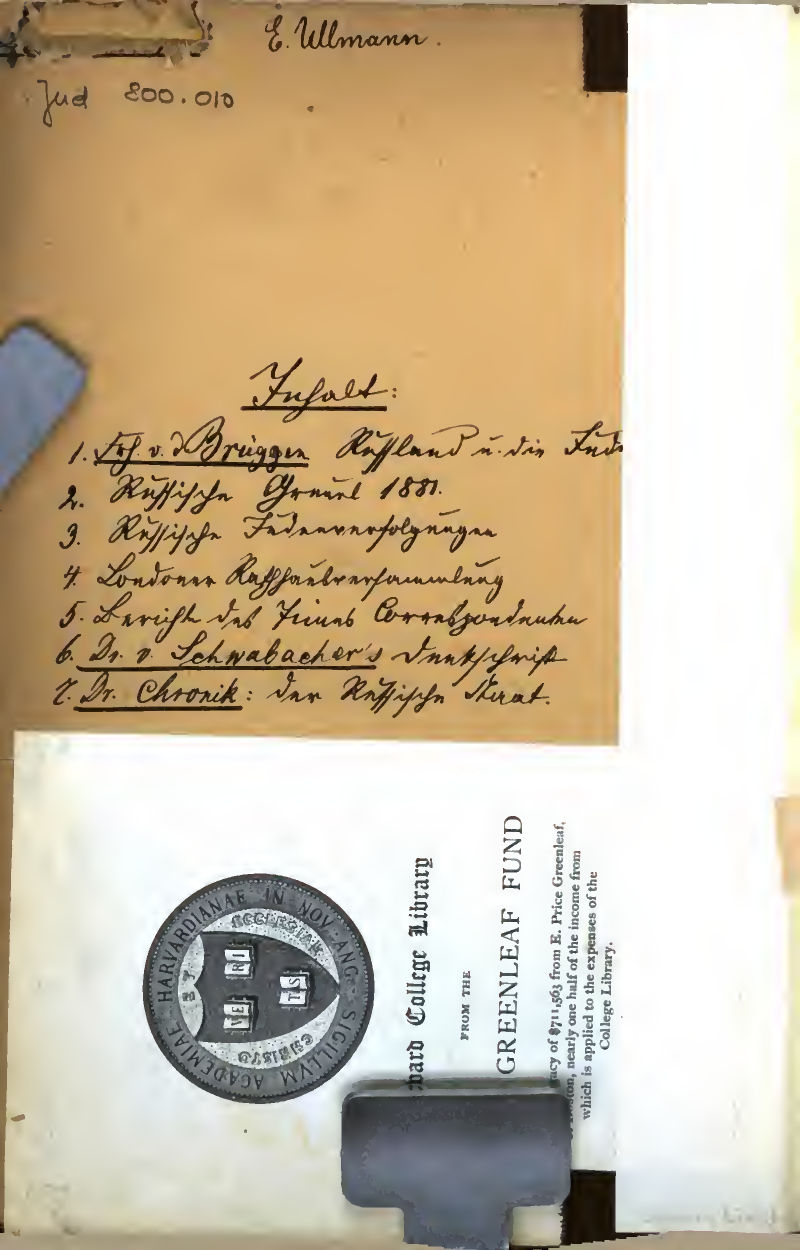 E. Ullmann.
Jud 800.010
Inhalt:
1. Frh. v. d Brüggen Russland u. die Jude
2. Russische Greuel 1881.
3. Russische Judenverfolgungen
4. Londoner Rathhausversammlung
5. Bericht des Times Correspondenten
6. Dr. v. Schwabacher's Denkschrift
7. Dr. Chronik: der Russische Staat.
SIGILLVM ACADEMIAE HARVARDIANAE IN NOV. ANG.
CHRISTO ET ECCLESIAE
VE RI
TS
vard College Library
FROM THE
GREENLEAF FUND
acy of $711,563 from E. Price Greenleaf,
ston, nearly one half of the income from
which is applied to the expenses of the
College Library.